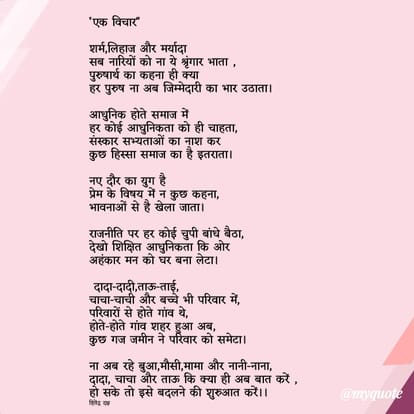 "एक विचार"
शर्म,लिहाज और मर्यादा
सब नारियों को ना ये श्रृंगार भाता ,
पुरुषार्थ का कहना ही क्या
हर पुरुष ना अब जिम्मेदारी का भार उठाता।
आधुनिक होते समाज में
हर कोई आधुनिकता को ही चाहता,
संस्कार सभ्यताओं का नाश कर
कुछ हिस्सा समाज का है इतराता।
नए दौर का युग है
प्रेम के विषय में न कुछ कहना,
भावनाओं से है खेला जाता।
राजनीति पर हर कोई चुपी बांधे बैठा,
देखो शिक्षित आधुनिकता कि ओर
अहंकार मन को घर बना लेटा।
दादा-दादी,ताऊ-ताई,
चाचा-चाची और बच्चे भी परिवार में,
परिवारों से होते गांव थे,
होते-होते गांव शहर हुआ अब,
कुछ गज जमीन ने परिवार को समेटा।
ना अब रहे बुआ,मौसी,मामा और नानी-नाना,
दादा, चाचा और ताऊ कि क्या ही अब बात करें ,
हो सके तो इसे बदलने की शुरुआत करें।।
@myquote